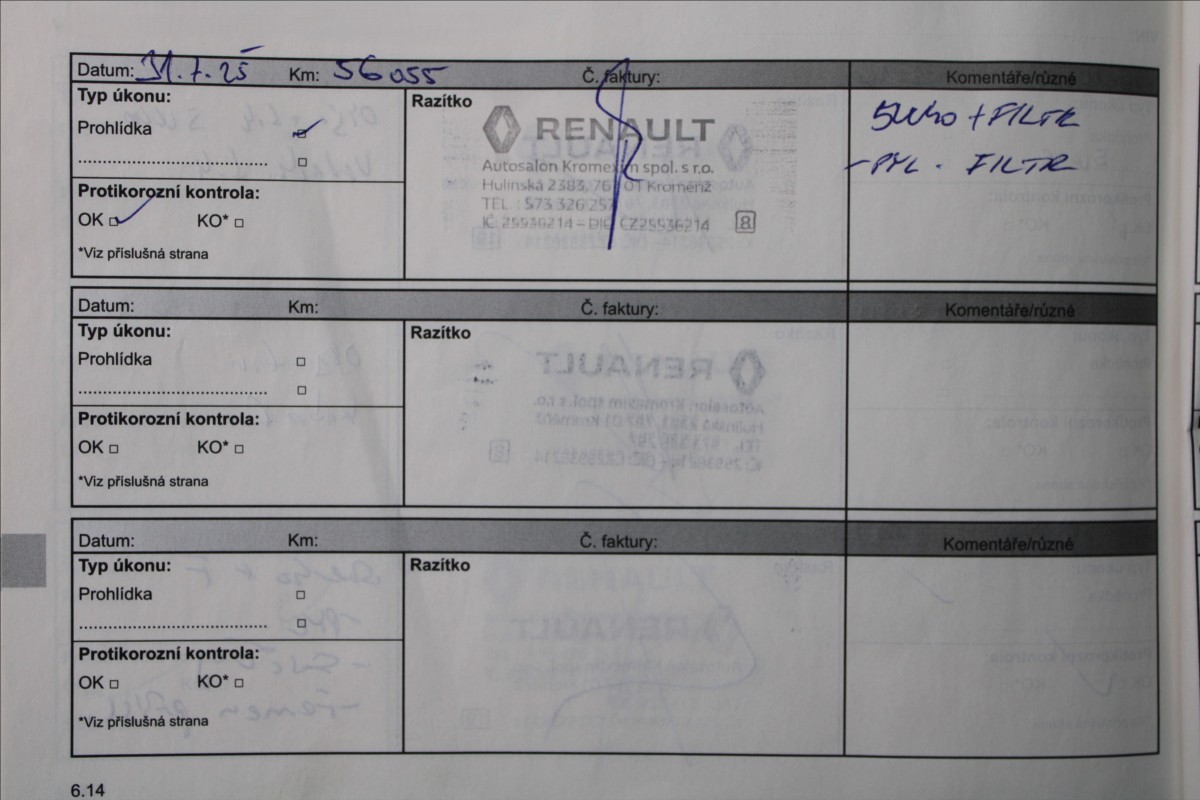 Datum: 31.7.25 Km: 56055 Č. faktury: Komentáře/různé
Typ úkonu:
Prohlídka
Protikorozní kontrola:
OK KO*
*Viz příslušná strana
Razítko
RENAULT
Autosalon Kromexim spol. s r.o.
Hulínská 2383, 767 01 Kroměříž
TEL.: 573 326 257
IČ 25536214 – DIČ CZ25536214 8
+ FILTR
- PYL. FILTR
Datum: Km: Č. faktury: Komentáře/různé
Typ úkonu:
Prohlídka
Protikorozní kontrola:
OK KO*
*Viz příslušná strana
Razítko
Datum: Km: Č. faktury: Komentáře/různé
Typ úkonu:
Prohlídka
Protikorozní kontrola:
OK KO*
*Viz příslušná strana
Razítko
6.14